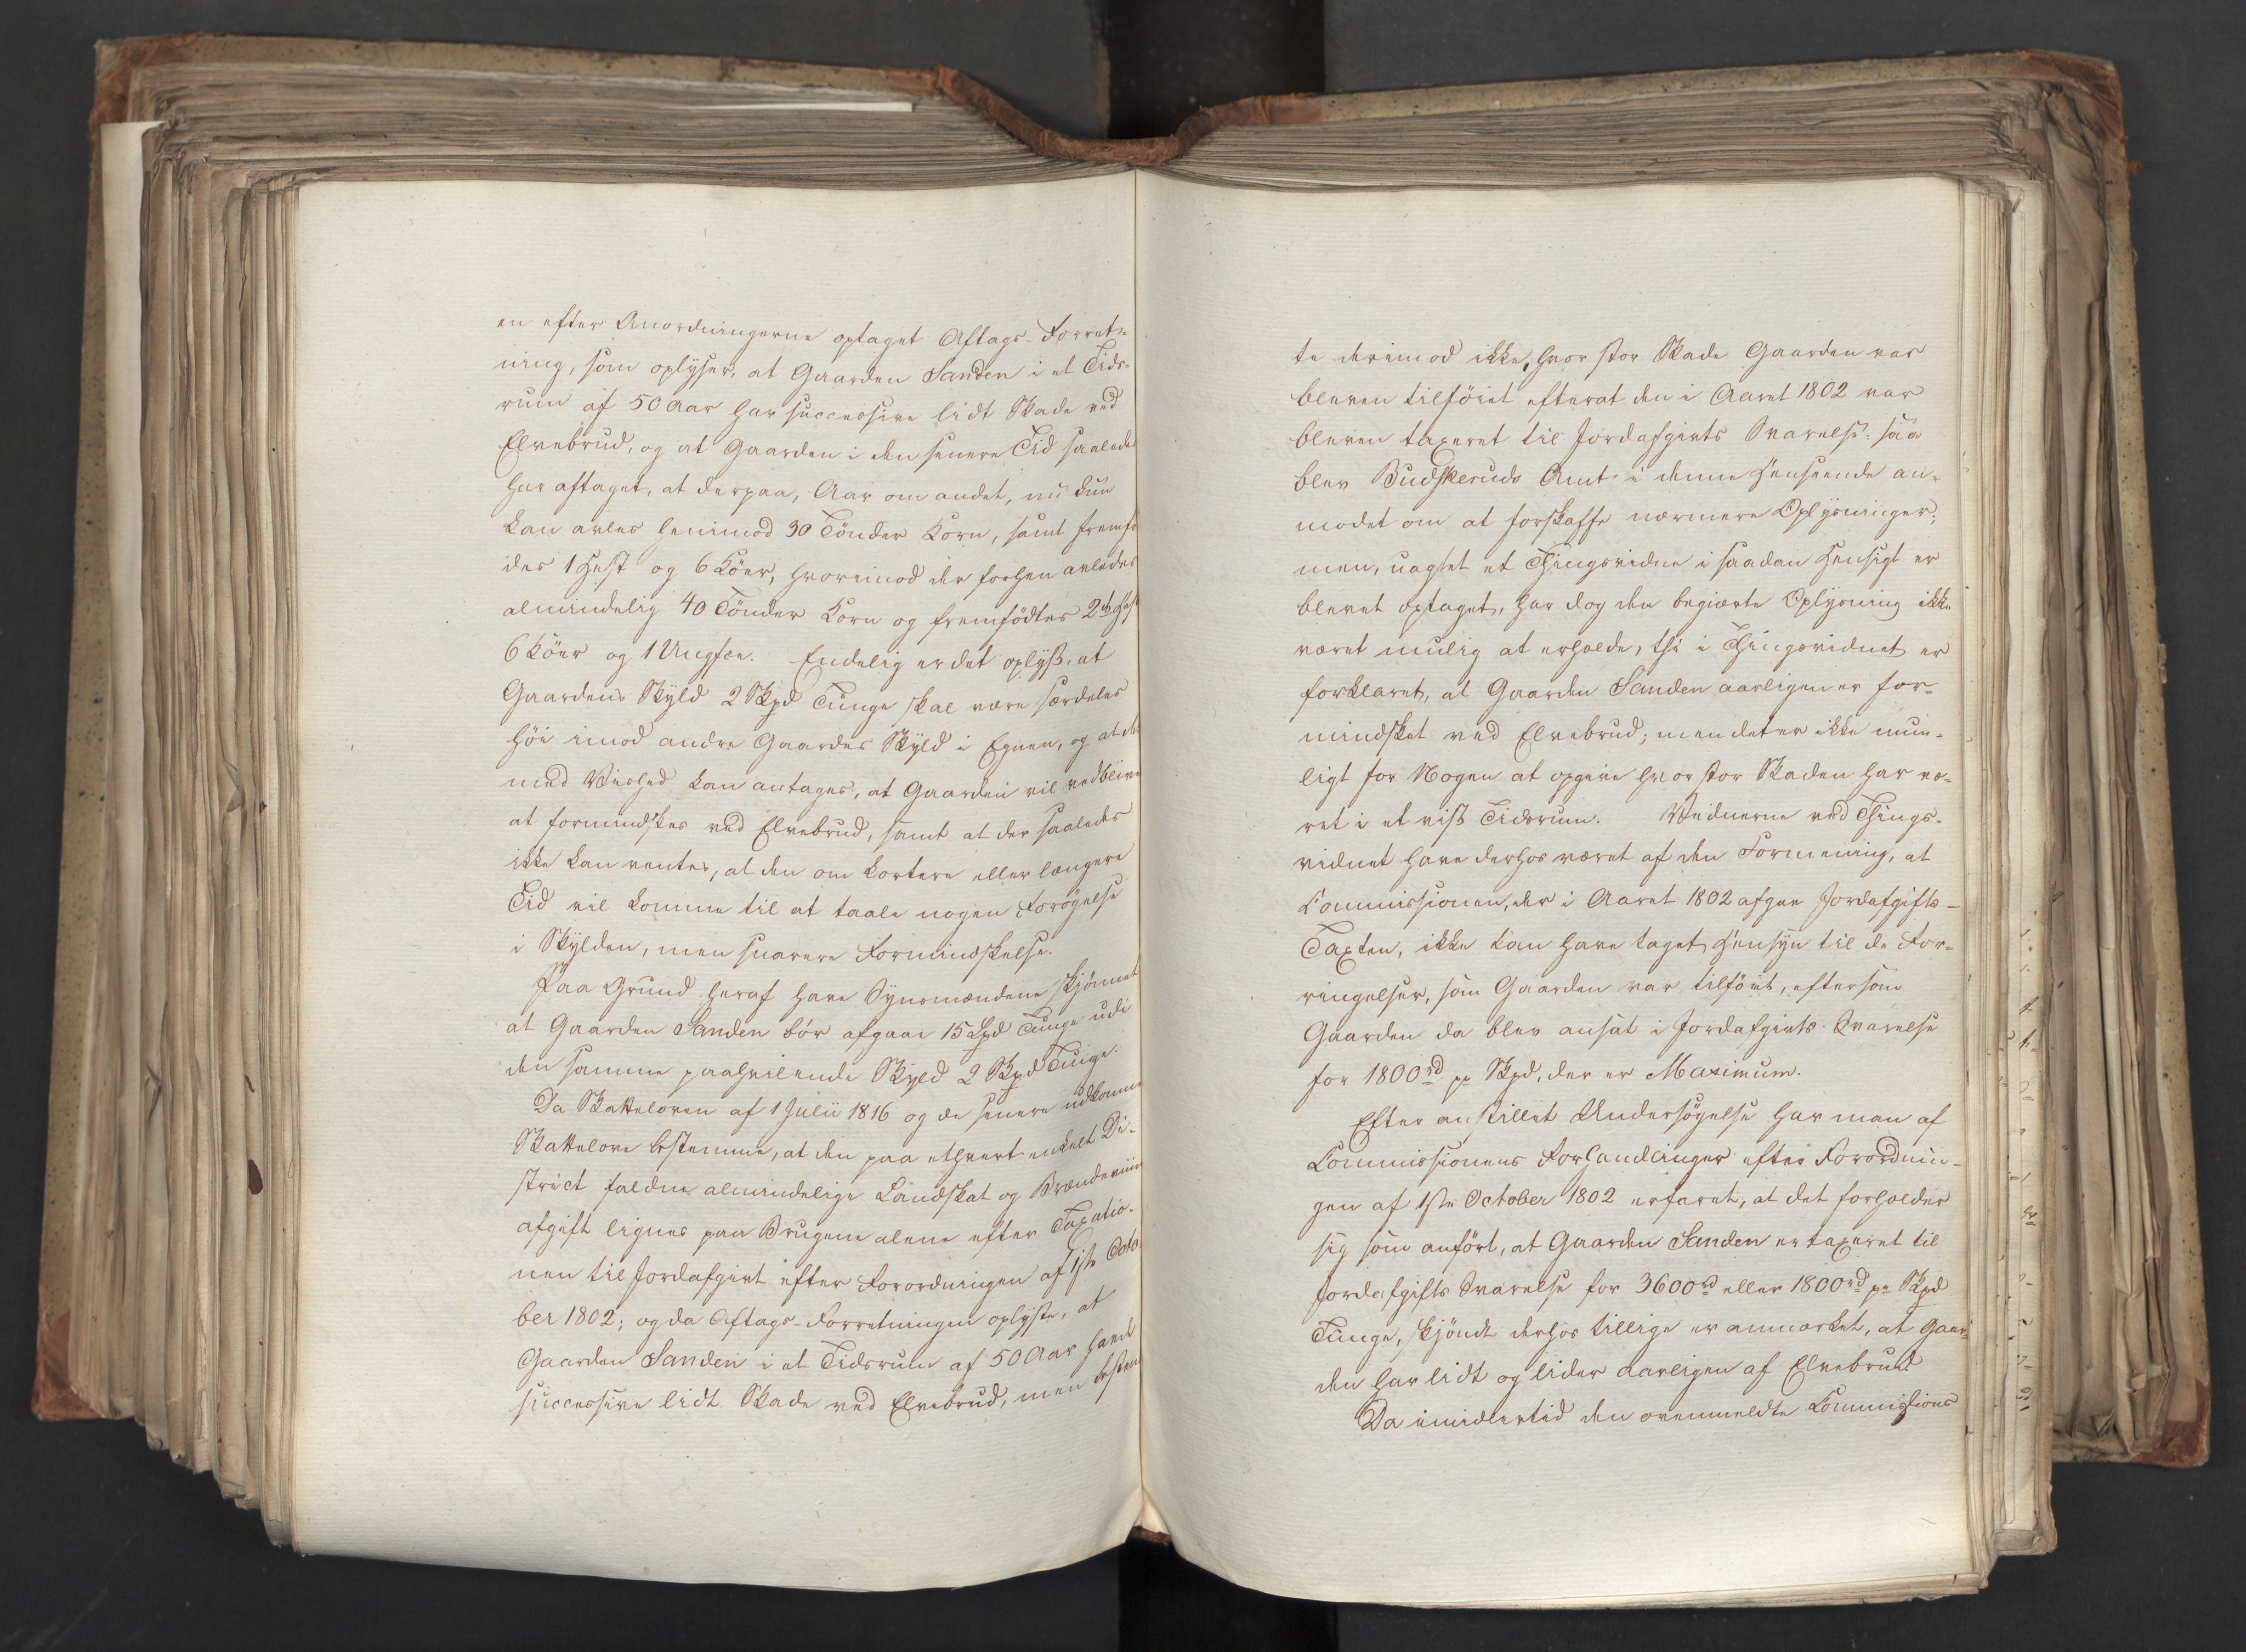 en efter Anordningerne optaget Aftags-Forret-
ning, som oplyser, at Gaarden Sanden i et Tids-
rum af 50 Aar har successive lidt Skade ved
Elvebrud, og at Gaarden i den senere Tid saaledes
har aftaget, at derpaa, Aar om andet, nu kun
kan avles henimod 30 Tönder Korn, samt fremfö
des 1 Hest og 6 Köer, hvorimod der forhen avledes
almindelig 40 Tönder Korn og fremfödtes 2de Heste
6 Köer og 1 Ungfæe. Endelig er det oplyst, at
Gaardens Skyld 2 Skpd Tunge skal være særdeles
höi imod andre Gaardes Skyld i Egnen, og at det
med Vished kan antages, at Gaarden vil vedblive
at formindskes ved Elvebrud, samt at der saaledes
ikke kan ventes, at den om kortere eller længere
Tid vil komme til at taale nogen Forögelse
i Skylden, men snarere Formindskelse.
Paa Grund heraf have Synsmændene skjönnet
at Gaarden Sanden bör afgaae 15 Lpd Tunge udi
den samme paahvilende Skyld 2 Skpd Tunge.
Da Skatteloven af 1 Julii 1816 og de senere udkomne
Skattelove bestemme, at den paa ethvert enkelt Di-
strict faldne almindelige Landskat og Brændeviins
afgift lignes paa Brugene alene efter Taxatio-
nen til Jordafgivt efter Forordningen af 1ste Octo-
ber 1802; og da Aftags-Forretningen oplyste, at
Gaarden Sanden i et Tidsrum af 50 Aar havde
successive lidt Skade ved Elvebrud, men bestem
te derimod ikke, hvor stor Skade Gaarden var
bleven tilföiet efterat den i Aaret 1802 var
bleven taxeret til Jordafgivts Svarelse: saa
blev Budskeruds Amt i denne Henseende an-
modet om at forskaffe nærmere Oplysninger;
men, uagtet et Thingsvidne i saadan Hensigt er
blevet optaget, har dog den begiærte Oplysning ikke
været mulig at erholde, thi i Thingsvidnet er
forklaret, at Gaarden Sanden aarligen er for-
mindsket ved Elvebrud; men det er ikke mue-
ligt for Nogen at opgive hvor stor Skaden har væ-
ret i et vist Tidsrum. Vidnerne ved Things-
vidnet have derhos været af den Formening, at
Commissionen, der i Aaret 1802 afgav Jordafgifts-
Taxten, ikke kan have taget Hensyn til de For-
ringelser, som Gaarden var tilföiet, eftersom
Gaarden da blev ansat i Jordafgivts Svarelse
for 1800 rd pr Skpd, der er Maximum.
Efter anstillet Undersögelse har man af
Commissionens Forhandlinger efter Forordnin-
gen af 1ste October 1802 erfaret, at det forholder
sig som anfört, at Gaarden Sanden er taxeret til
Jordafgifts Svarelse for 3600 rd eller 1800 rd pr Skpd
Tunge, skjöndt derhos tillige er anmærket, at Gaar-
den har lidt og lider aarligen af Elvebrud
Da imidlertid den ovenmeldte Commissions